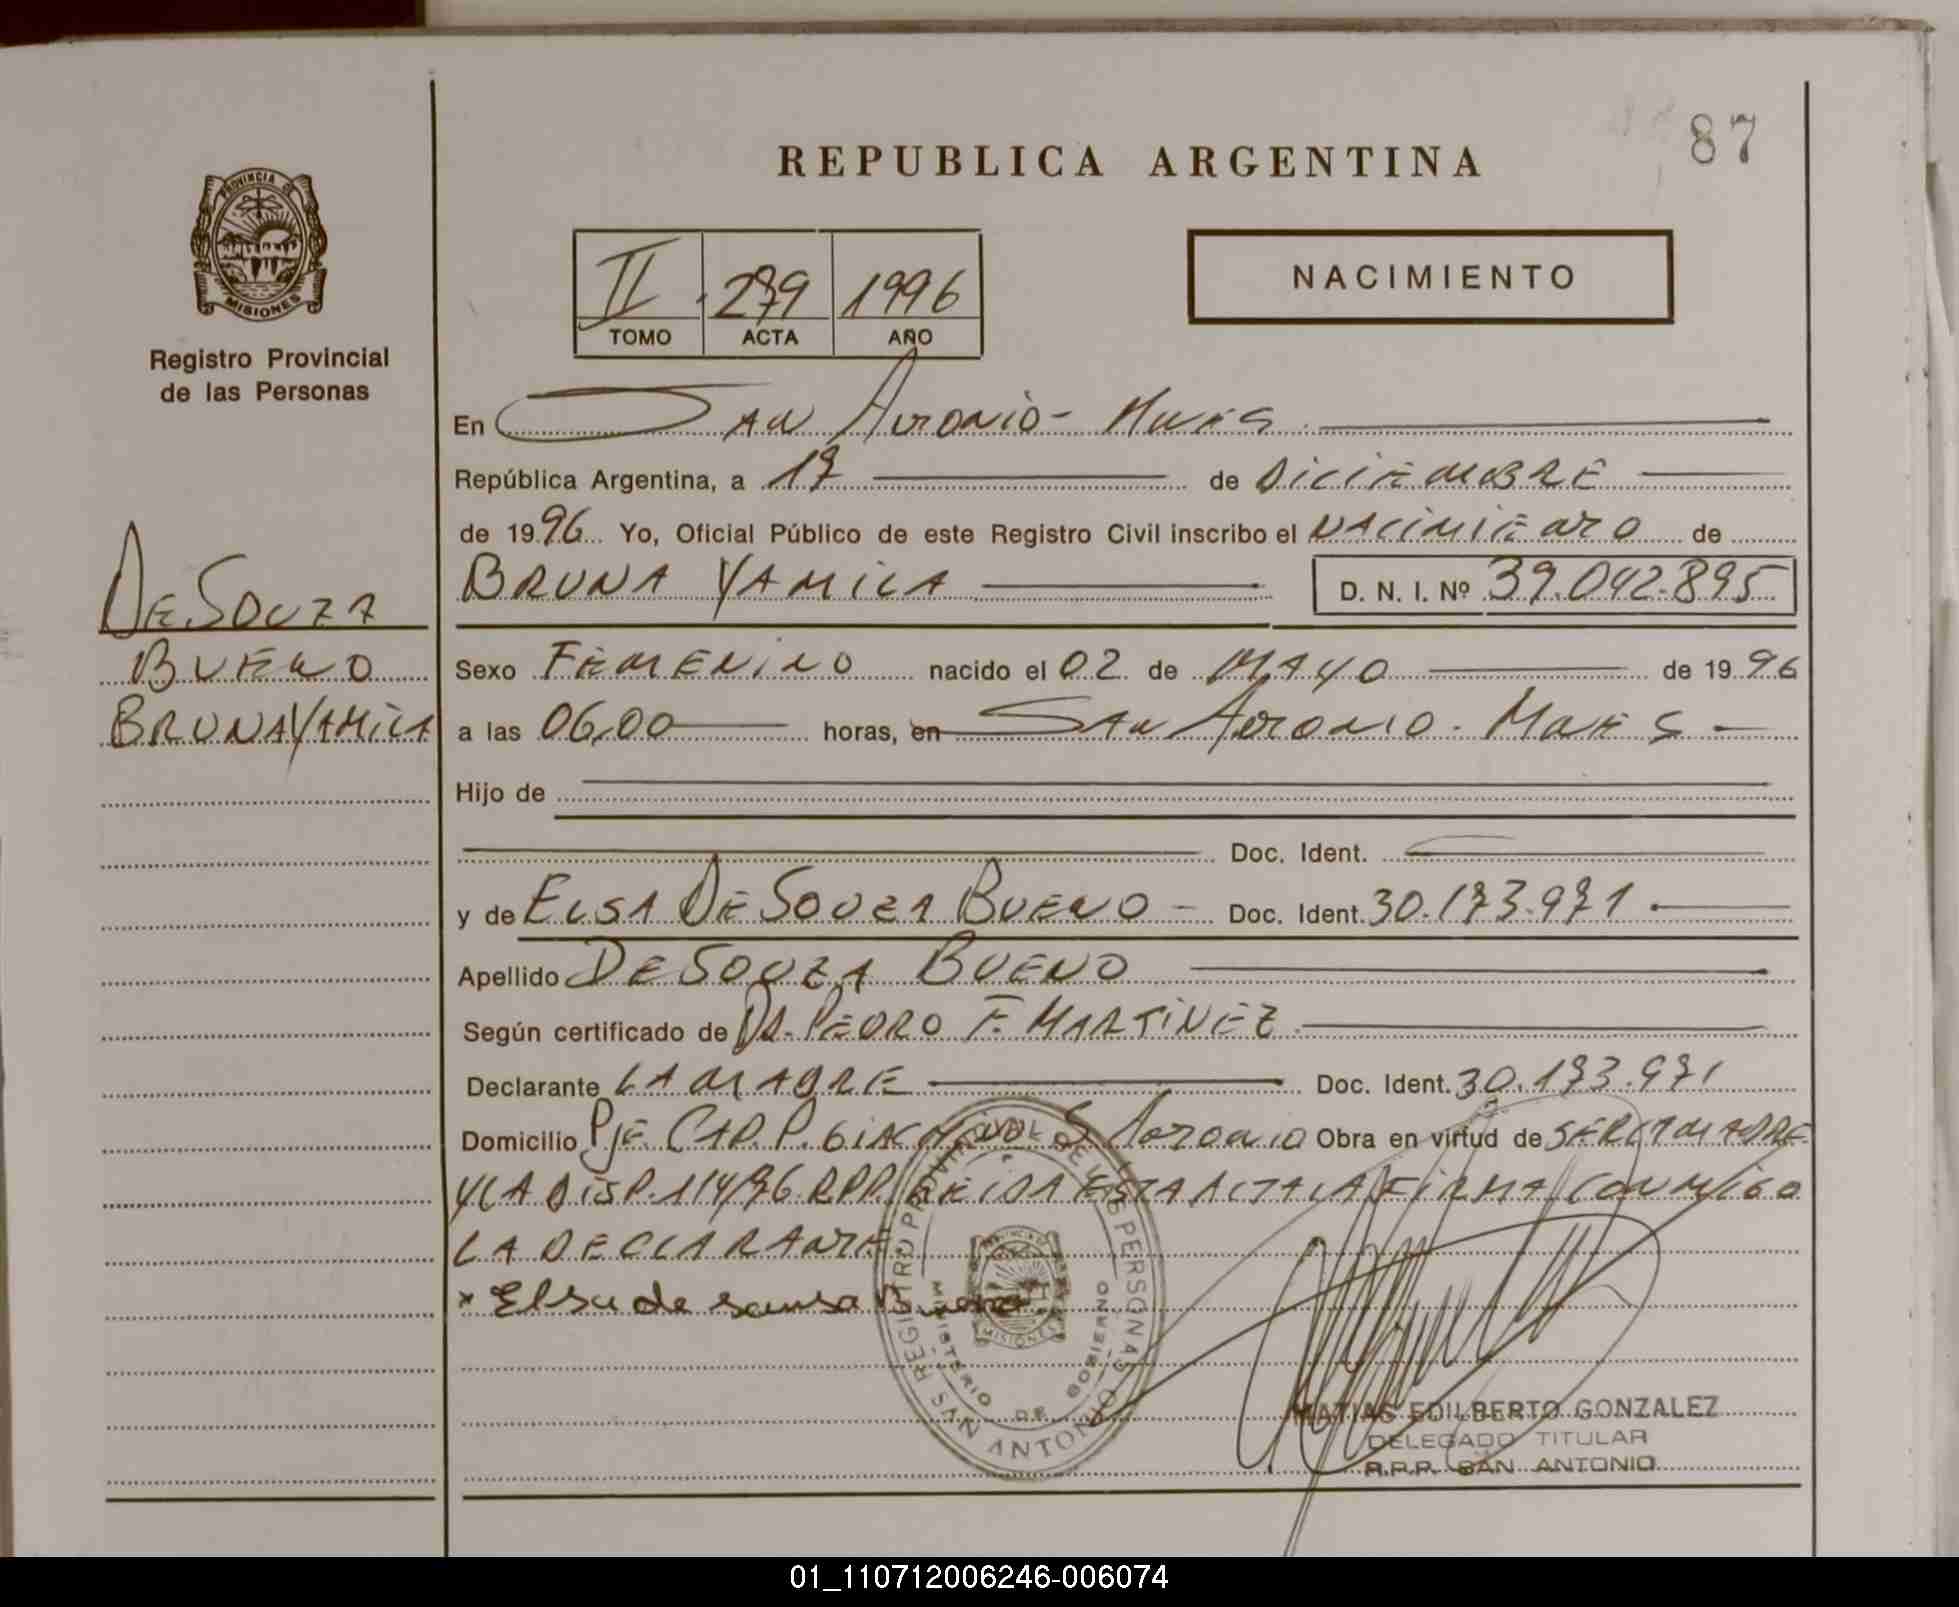 87
REPUBLICA ARGENTINA
PROVINCIA DE
MISIONES
Registro Provincial
de las Personas
II 279 1996
TOMO ACTA AÑO
NACIMIENTO
En SAN ANTONIO - MNES
República Argentina, a 17 de DICIEMBRE
de 1996 Yo, Oficial Público de este Registro Civil inscribo el NACIMIENTO de
BRUNA YAMILA D. N. I. Nº 39.042.895
DE SOUZA
BUENO
BRUNA YAMILA
Sexo FEMENINO nacido el 02 de MAYO de 1996
a las 06,00 horas, en SAN ANTONIO - MNES
Hijo de
Doc. Ident.
y de ELSA DE SOUZA BUENO - Doc. Ident. 30.173.971
Apellido DE SOUZA BUENO
Según certificado de DR. PEDRO F. MARTINEZ
Declarante LA MADRE Doc. Ident. 30.173.971
Domicilio PJE. CAP. P. GIACHINO S. ANTONIO Obra en virtud de SER LA MADRE
Y LA DISP. 114/96 R.P.P. LEIDA ESTA ACTA LA FIRMA CONMIGO
LA DECLARANTE
x Elsa de sousa Bueno
REGISTRO PROVINCIAL DE LAS PERSONAS
MINISTERIO DE GOBIERNO
MISIONES
SAN ANTONIO
MATIAS EDILBERTO GONZALEZ
DELEGADO TITULAR
R.P.P. SAN ANTONIO
01_110712006246-006074